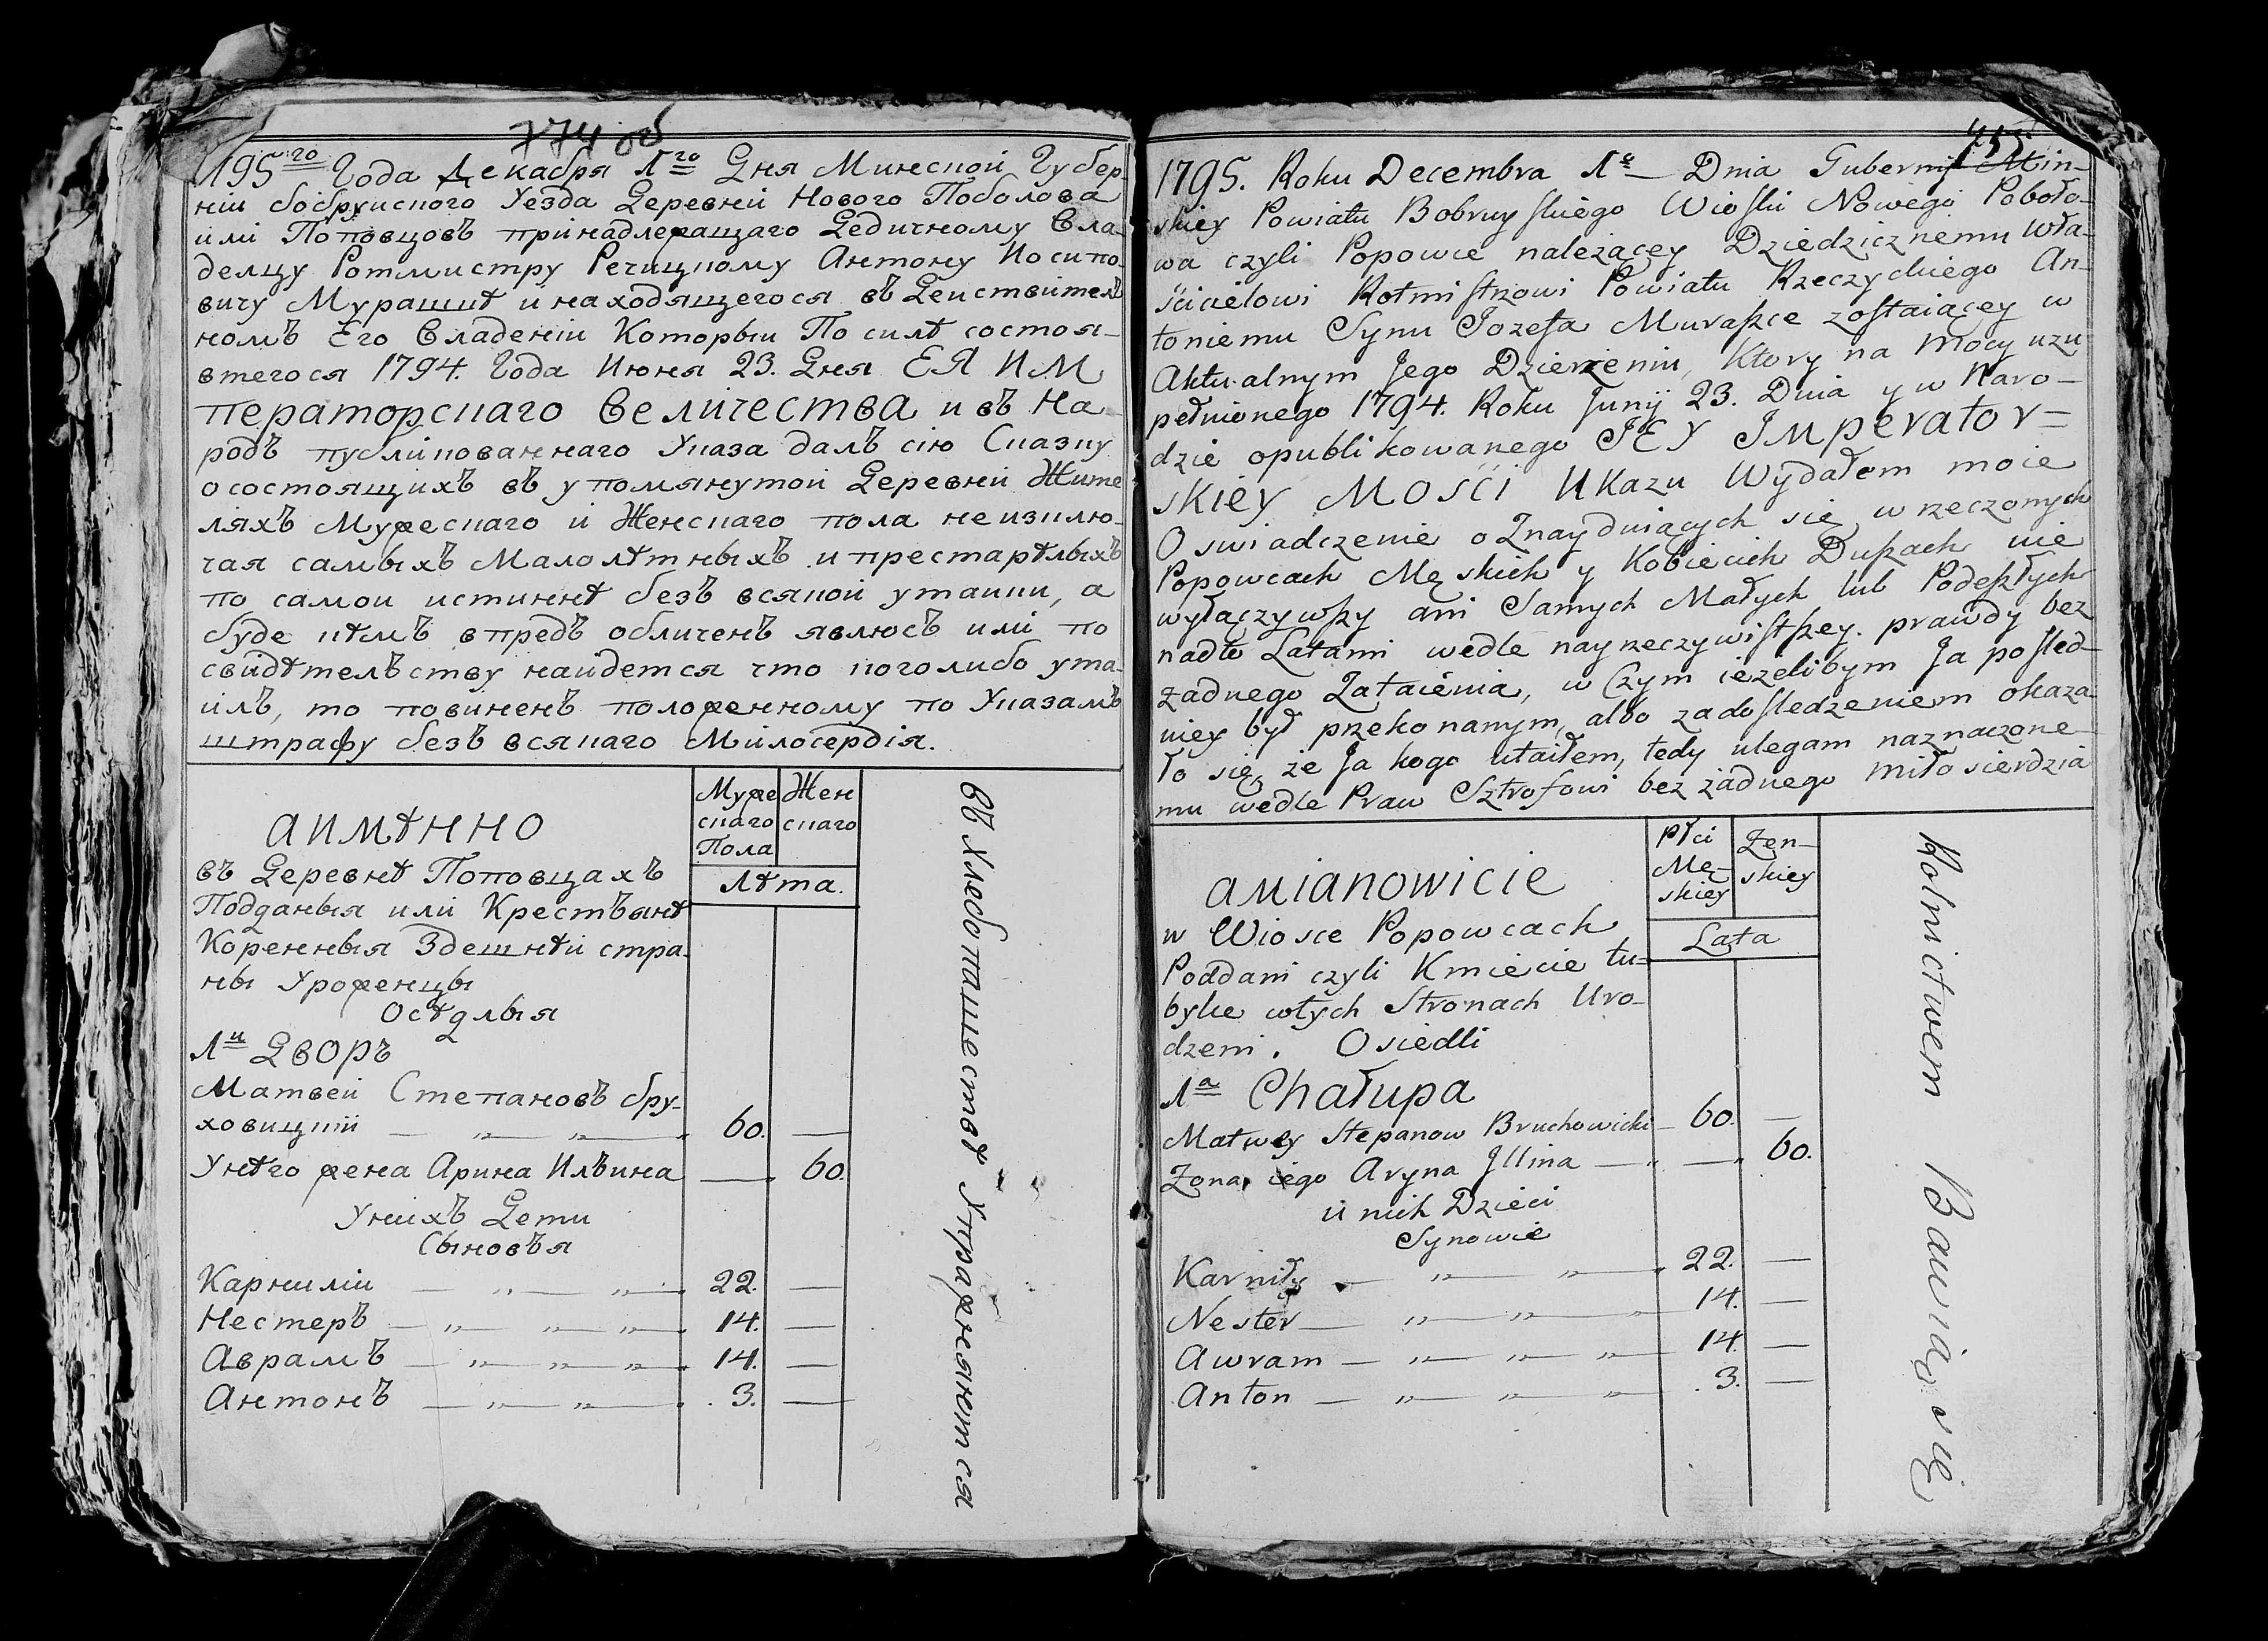 774 об
1795го Года Декабря 1го Дня Минской Губер-
ніи бобруиского Уезда Деревни Нового Поболова
или Поповцовъ принадлежащаго Дедичному Вла-
делцу Ротмистру Речицкому Антону Иосипо-
вичу Мурашкѣ и находящегося въ Деиствител-
номъ Его Владеніи Которыи По силѣ состоя-
втегося 1794. Года Июня 23. Дня ЕЯ ИМ
ператорскаго Величества и въ На-
родъ публикованнаго Указа далъ сію Сказку
о состоящихъ въ упомянутои Деревни Жите
ляхъ Мужескаго и Женскаго пола не изклю-
чая самыхъ Малолѣтныхъ и престарѣлыхъ
по самои истиннѣ безъ всякои утаики, а
буде кѣмъ впредъ обличенъ явлюсъ или по
свидѣтелъству наидется что кого либо ута-
илъ, то повиненъ положенному по Указамъ
штрафу безъ всякаго Милосердія.
АИМѢННО
Муже
скаго
Пола
Жен
скаго
Лѣта.
въ Деревнѣ Поповцахъ
Подданыя или Крестъянѣ
Коренныя Здешнѣи стра-
ны Уроженцы
Осѣдлыя
1и ДВОРЪ
Матвеи Степановъ бру-
ховицкіи — „ — „ — 60. —
Унѣго жена Арина Илъина — 60.
Унихъ Дети
Сыновъя
Карниліи — „ — „ — 22. —
Нестеръ — „ — „ — „ — 14. —
Аврамъ — „ — „ — „ — 14. —
Антонъ — „ — „ — 3. —
въ Хлебопашествѣ Упражняются
755
1795. Roku Decembra 1o Dnia Gubernij Min-
skiey Powiatu Bobruyskiego Wioski Nowego Poboło-
wa czyli Popowce należącey Dziedzicznemu Wła-
ścicielowi Rotmistrzowi Powiatu Rzeczyckiego An-
toniemu Synu Jozefa Muraszce zostaiącey w
Aktualnym Jego Dzierżeniu, Ktory na mocy uzu
pełnionego 1794. Roku Junij 23. Dnia y w Naro-
dzie opublikowanego JEY IMperator=
skiey MOŚCi UKazu Wydałem moie
Oswiadczenie o Znayduiących się w rzeczonych
Popowcach Męskich y Kobiecich Duszach nie
wyłączywszy ani Samych Małych lub Podeszłych
nadto Latami wedle nayrzeczywistszey prawdy bez
żadnego Zataienia, w Czym ieżelibym Ja posled-
niey był przekonanym, albo zadosledzeniem okaza-
ło się że Ja kogo utaiłem, tedy ulegam naznaczone-
mu wedle Praw Sztrofowi bez żadnego miłosierdzia
amianowicie
Płci
Mę-
skiey
Żen-
skiey
Lata
w Wiosce Popowcach
Poddani czyli Kmiecie tu-
bylce wtych Stronach Uro-
dzeni. Osiedli
1a Chałupa
Matwey Stepanow Bruchowicki — 60. —
Żona iego Aryna Jllina — „ — 60.
u nich Dzieci
Synowie
Karniły — „ — „ — 22. —
Nester — „ — „ — „ — 14. —
Awram — „ — „ — „ — 14. —
Anton — „ — „ — „ — 3. —
Rolnictwem Bawią się